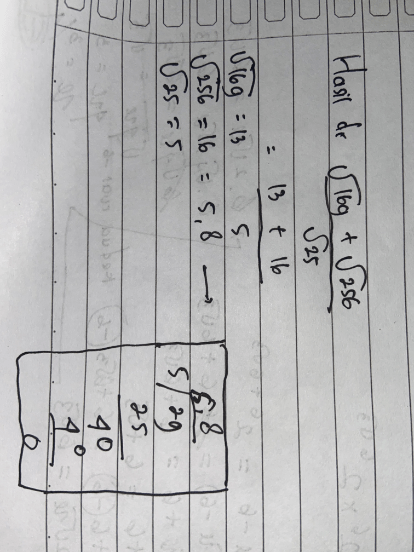 Hasil dr √169 + √256
√25
√169 = 13 = 13 + 16
5
√256 = 16 = 5,8 →
√25 = 5
5,8
5/29
25
40
40
0